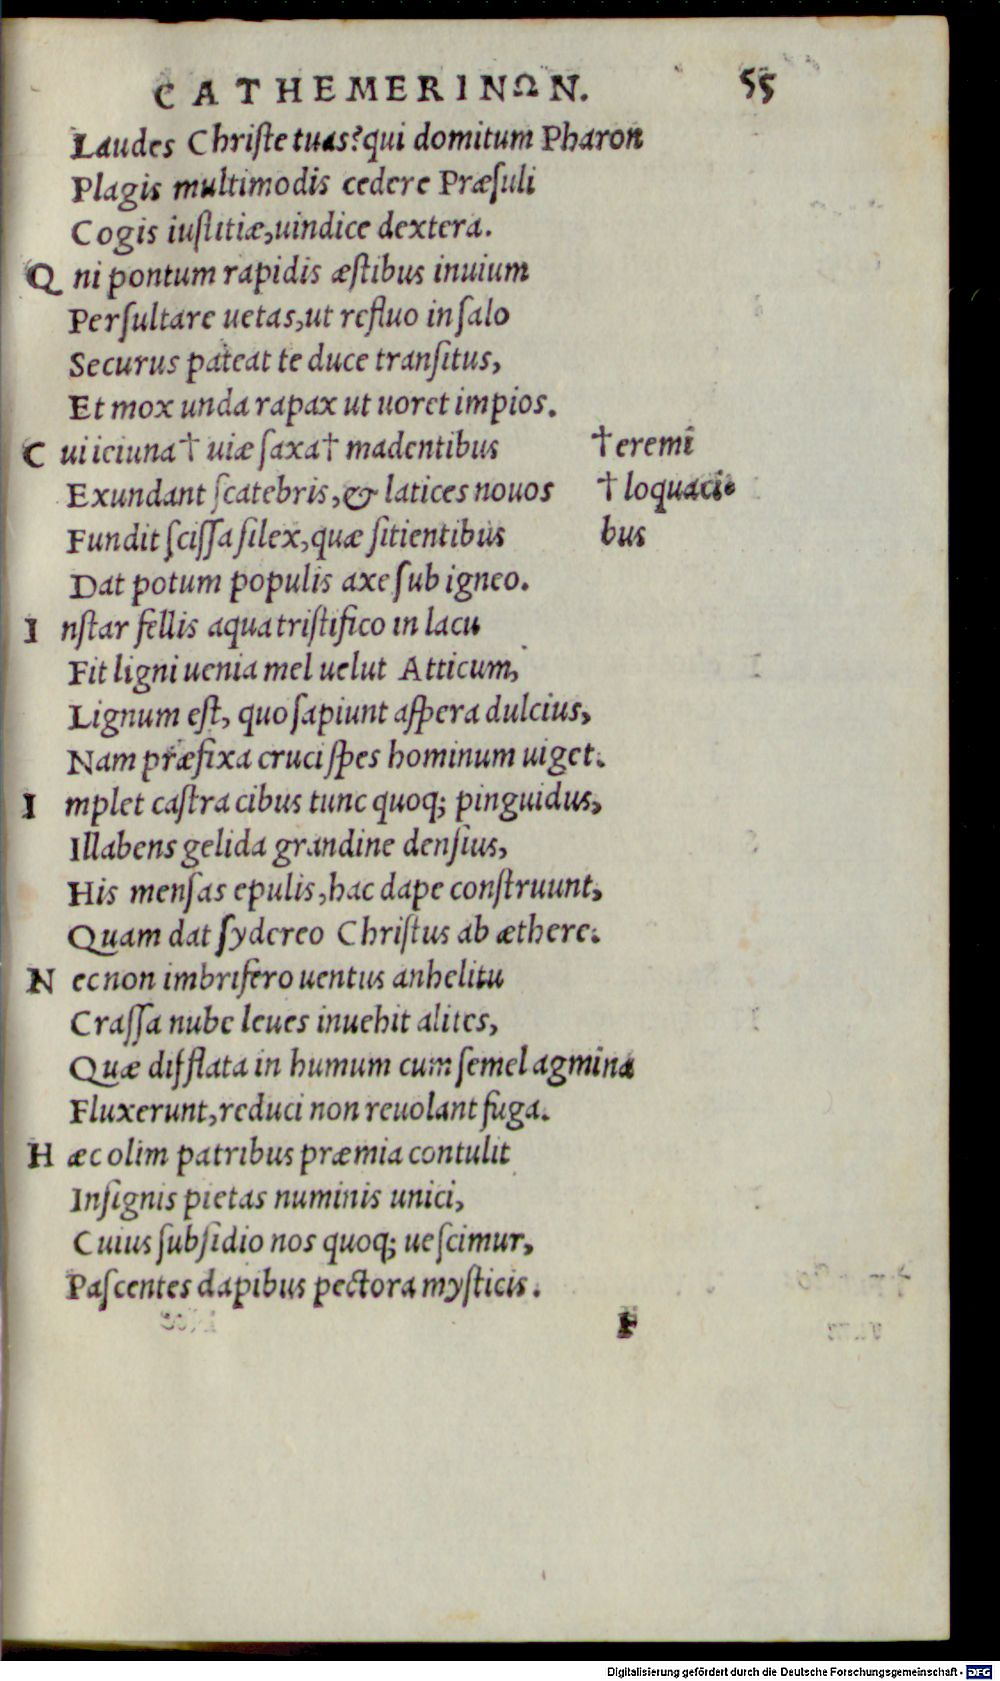 CATHEMERINΩN. 55
Laudes Christe tuas? qui domitum Pharon
Plagis multimodis cedere Præsuli
Cogis iustitiæ, uindice dextera.
Q ni pontum rapidis æstibus inuium
Persultare uetas, ut refluo in salo
Securus pateat te duce transitus,
Et mox unda rapax ut uoret impios.
C ui ieiuna† uiæ saxa† madentibus †eremi
Exundant scatebris, & latices nouos †loquaci-
Fundit scissa silex, quæ sitientibus bus
Dat potum populis axe sub igneo.
I nstar fellis aqua tristifico in lacu
Fit ligni uenia mel uelut Atticum,
Lignum est, quo sapiunt aspera dulcius,
Nam præfixa cruci spes hominum uiget.
I mplet castra cibus tunc quoq; pinguidus,
Illabens gelida grandine densius,
His mensas epulis, hac dape construunt,
Quam dat sydereo Christus ab æthere.
N ec non imbrifero uentus anhelitu
Crassa nube leues inuehit alites,
Quæ difflata in humum cum semel agmina
Fluxerunt, reduci non reuolant fuga.
H æc olim patribus præmia contulit
Insignis pietas numinis unici,
Cuius subsidio nos quoq; uescimur,
Pascentes dapibus pectora mysticis.
F
Digitalisierung gefördert durch die Deutsche Forschungsgemeinschaft - DFG